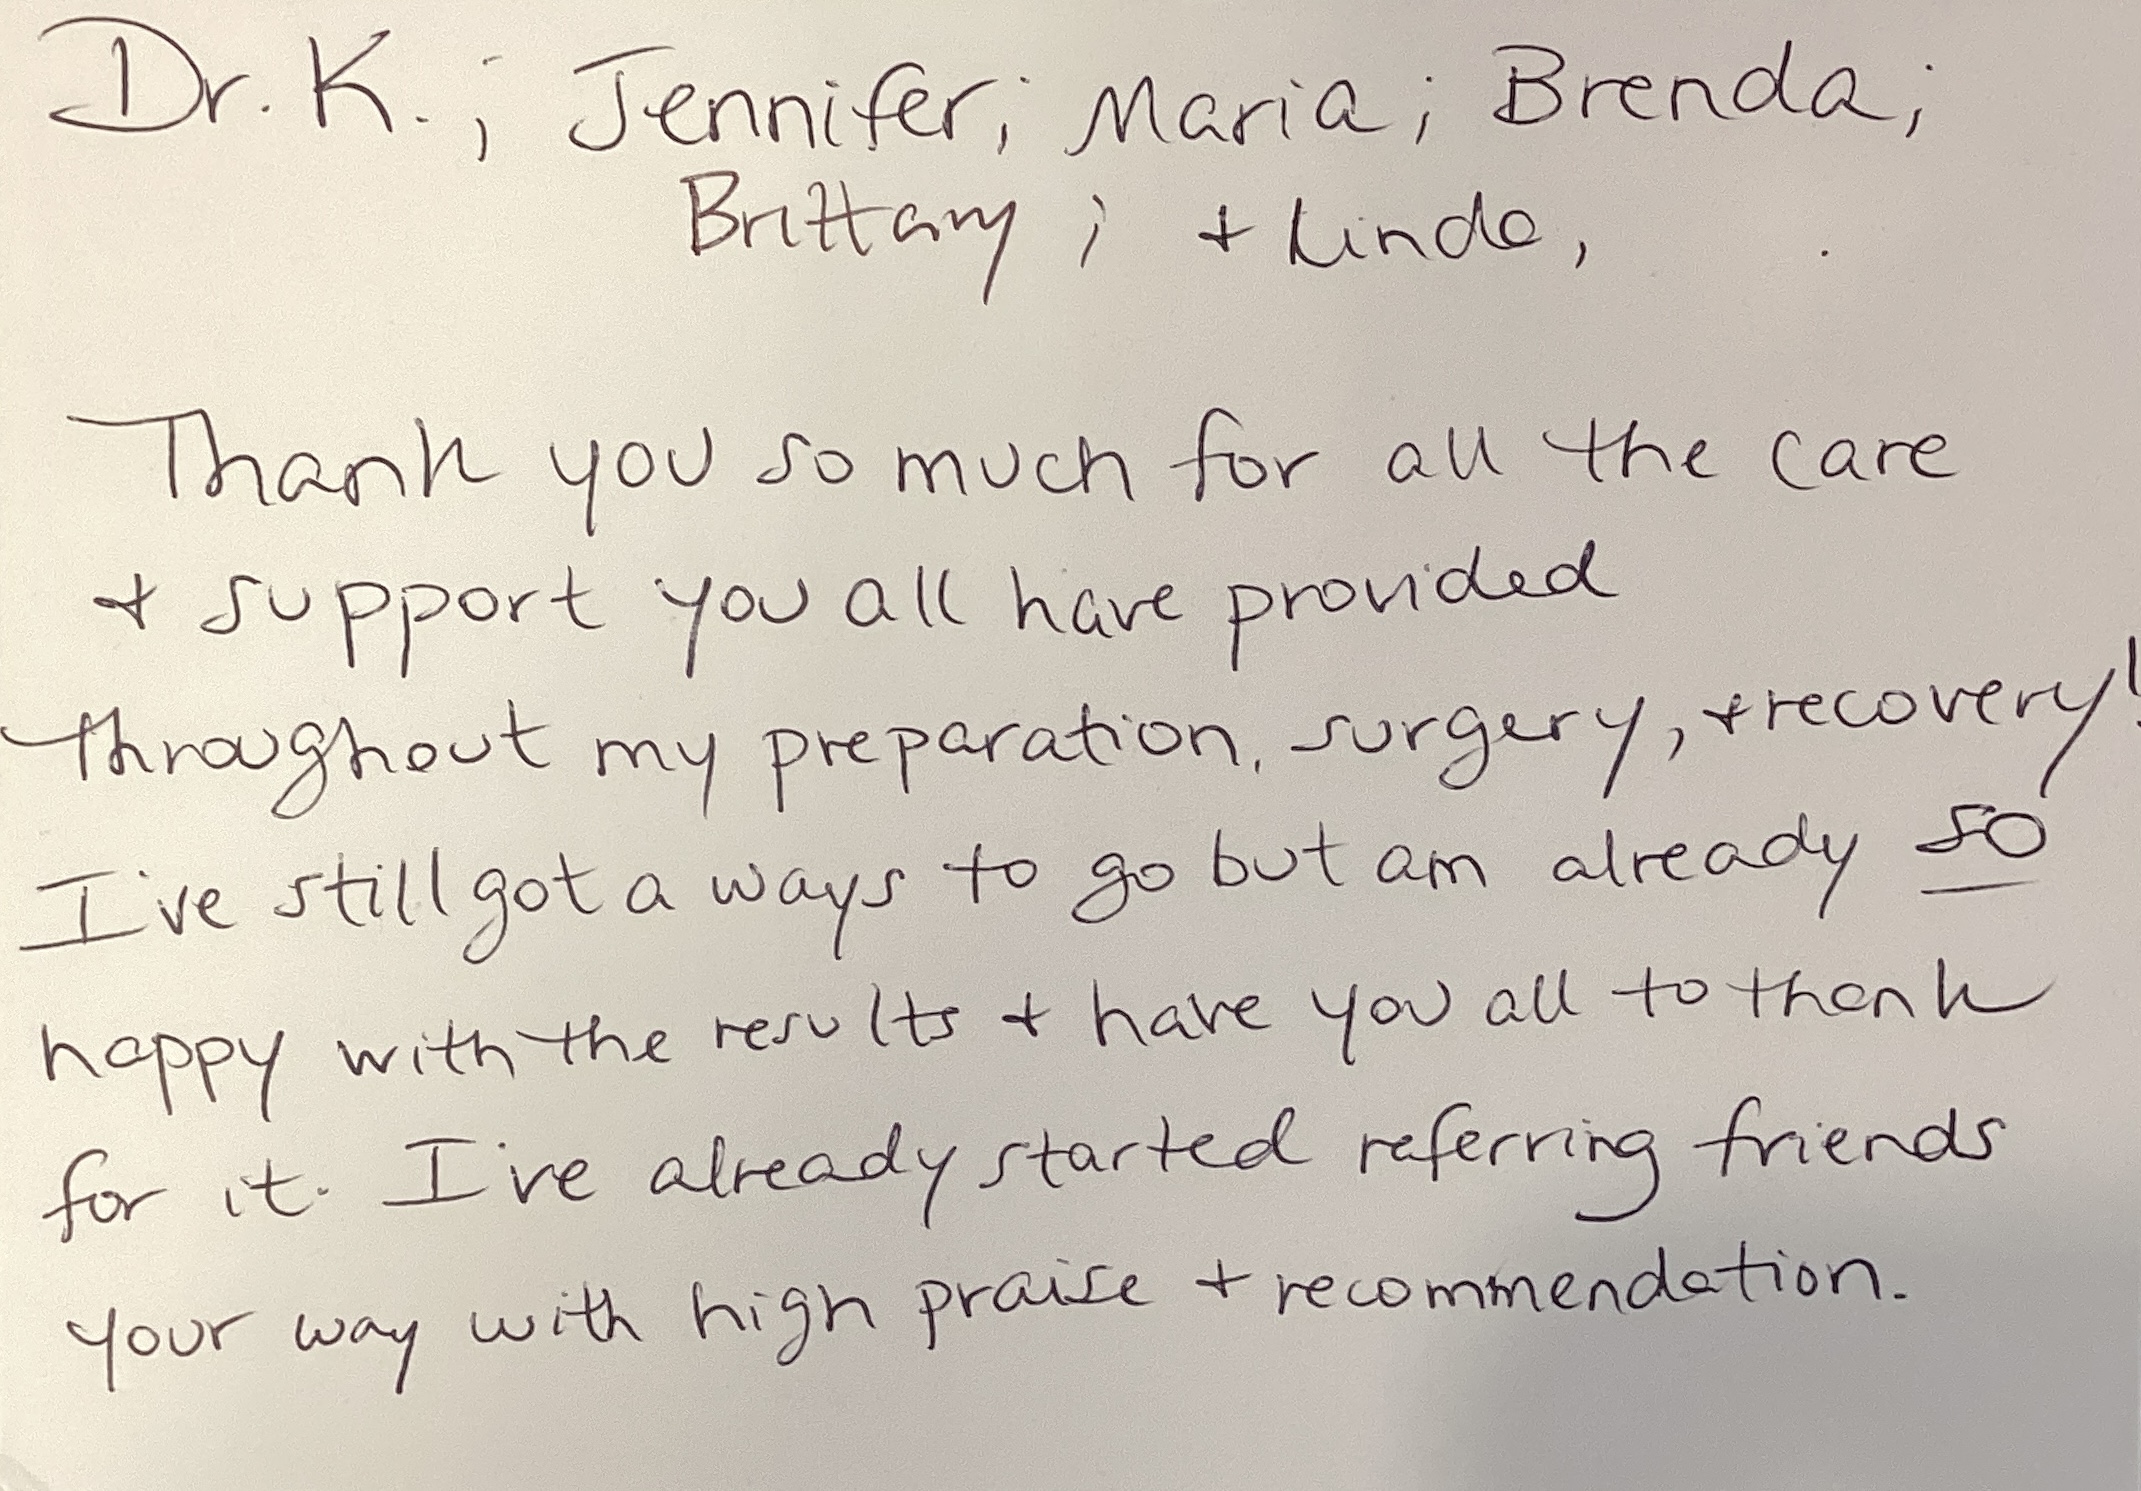 Dr. K.; Jennifer; Maria; Brenda;
Brittany; + Linda,
Thank you so much for all the care
+ support you all have provided
throughout my preparation, surgery, + recovery!
I've still got a ways to go but am already so
happy with the results + have you all to thank
for it. I've already started referring friends
your way with high praise + recommendation.